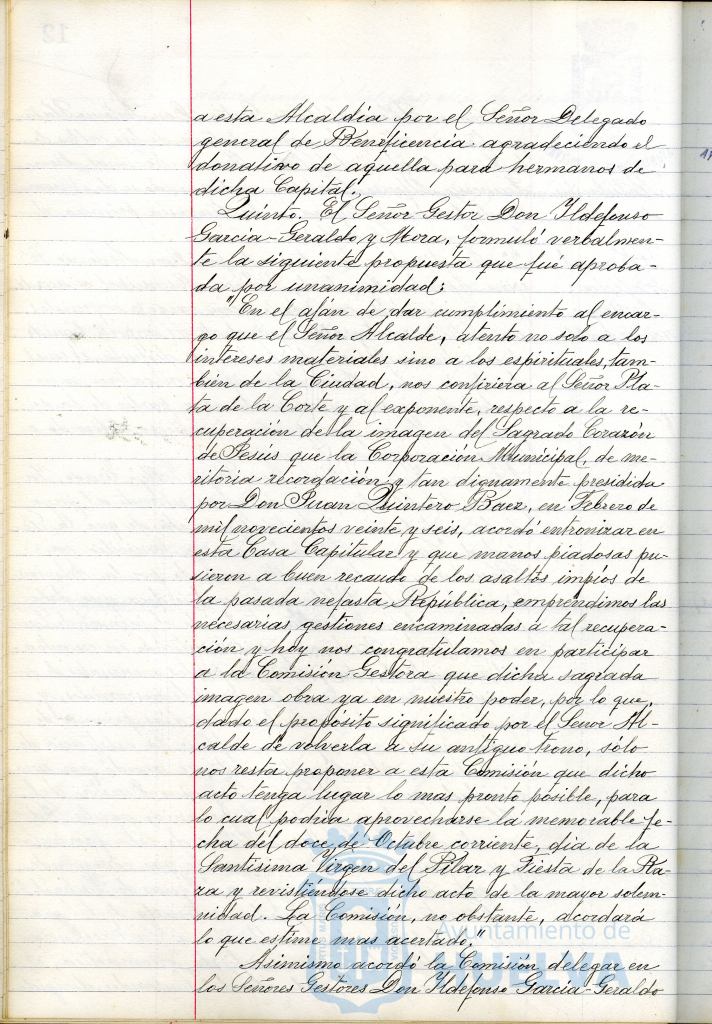 a esta Alcaldía por el Señor Delegado
general de Beneficencia agradeciendo el
donativo de aquella para hermanos de
dicha Capital.
Quinto. El Señor Gestor Don Ildefonso
García-Geraldo y Mora, formuló verbalmen-
te la siguiente propuesta que fué aproba-
da por unanimidad:
"En el afán de dar cumplimiento al encar-
go que el Señor Alcalde, atento no solo a los
intereses materiales sino a los espirituales, tam-
bién de la Ciudad, nos confiriera al Señor Pla-
ta de la Corte y al exponente, respecto a la re-
cuperación de la imagen del Sagrado Corazón
de Jesús que la Corporación Municipal, de me-
ritoria recordación y tan dignamente presidida
por Don Juan Quintero Baez, en Febrero de
mil novecientos veinte y seis, acordó entronizar en
esta Casa Capitular y que manos piadosas pu-
sieron a buen recaudo de los asaltos impíos de
la pasada nefasta República, emprendimos las
necesarias gestiones encaminadas a tal recupera-
ción y hoy nos congratulamos en participar
a la Comisión Gestora que dicha sagrada
imagen obra ya en nuestro poder, por lo que,
dado el propósito significado por el Señor Al-
calde de volverla a su antiguo trono, sólo
nos resta proponer a esta Comisión que dicho
acto tenga lugar lo mas pronto posible, para
lo cual podría aprovecharse la memorable fe-
cha del doce de Octubre corriente, dia de la
Santísima Virgen del Pilar y Fiesta de la Ra-
za y revistiéndose dicho acto de la mayor solem-
nidad. La Comisión, no obstante, acordará
lo que estime mas acertado."
Asimismo acordó la Comisión delegar en
los Señores Gestores Don Ildefonso García-Geraldo
Ayuntamiento de
HUELVA